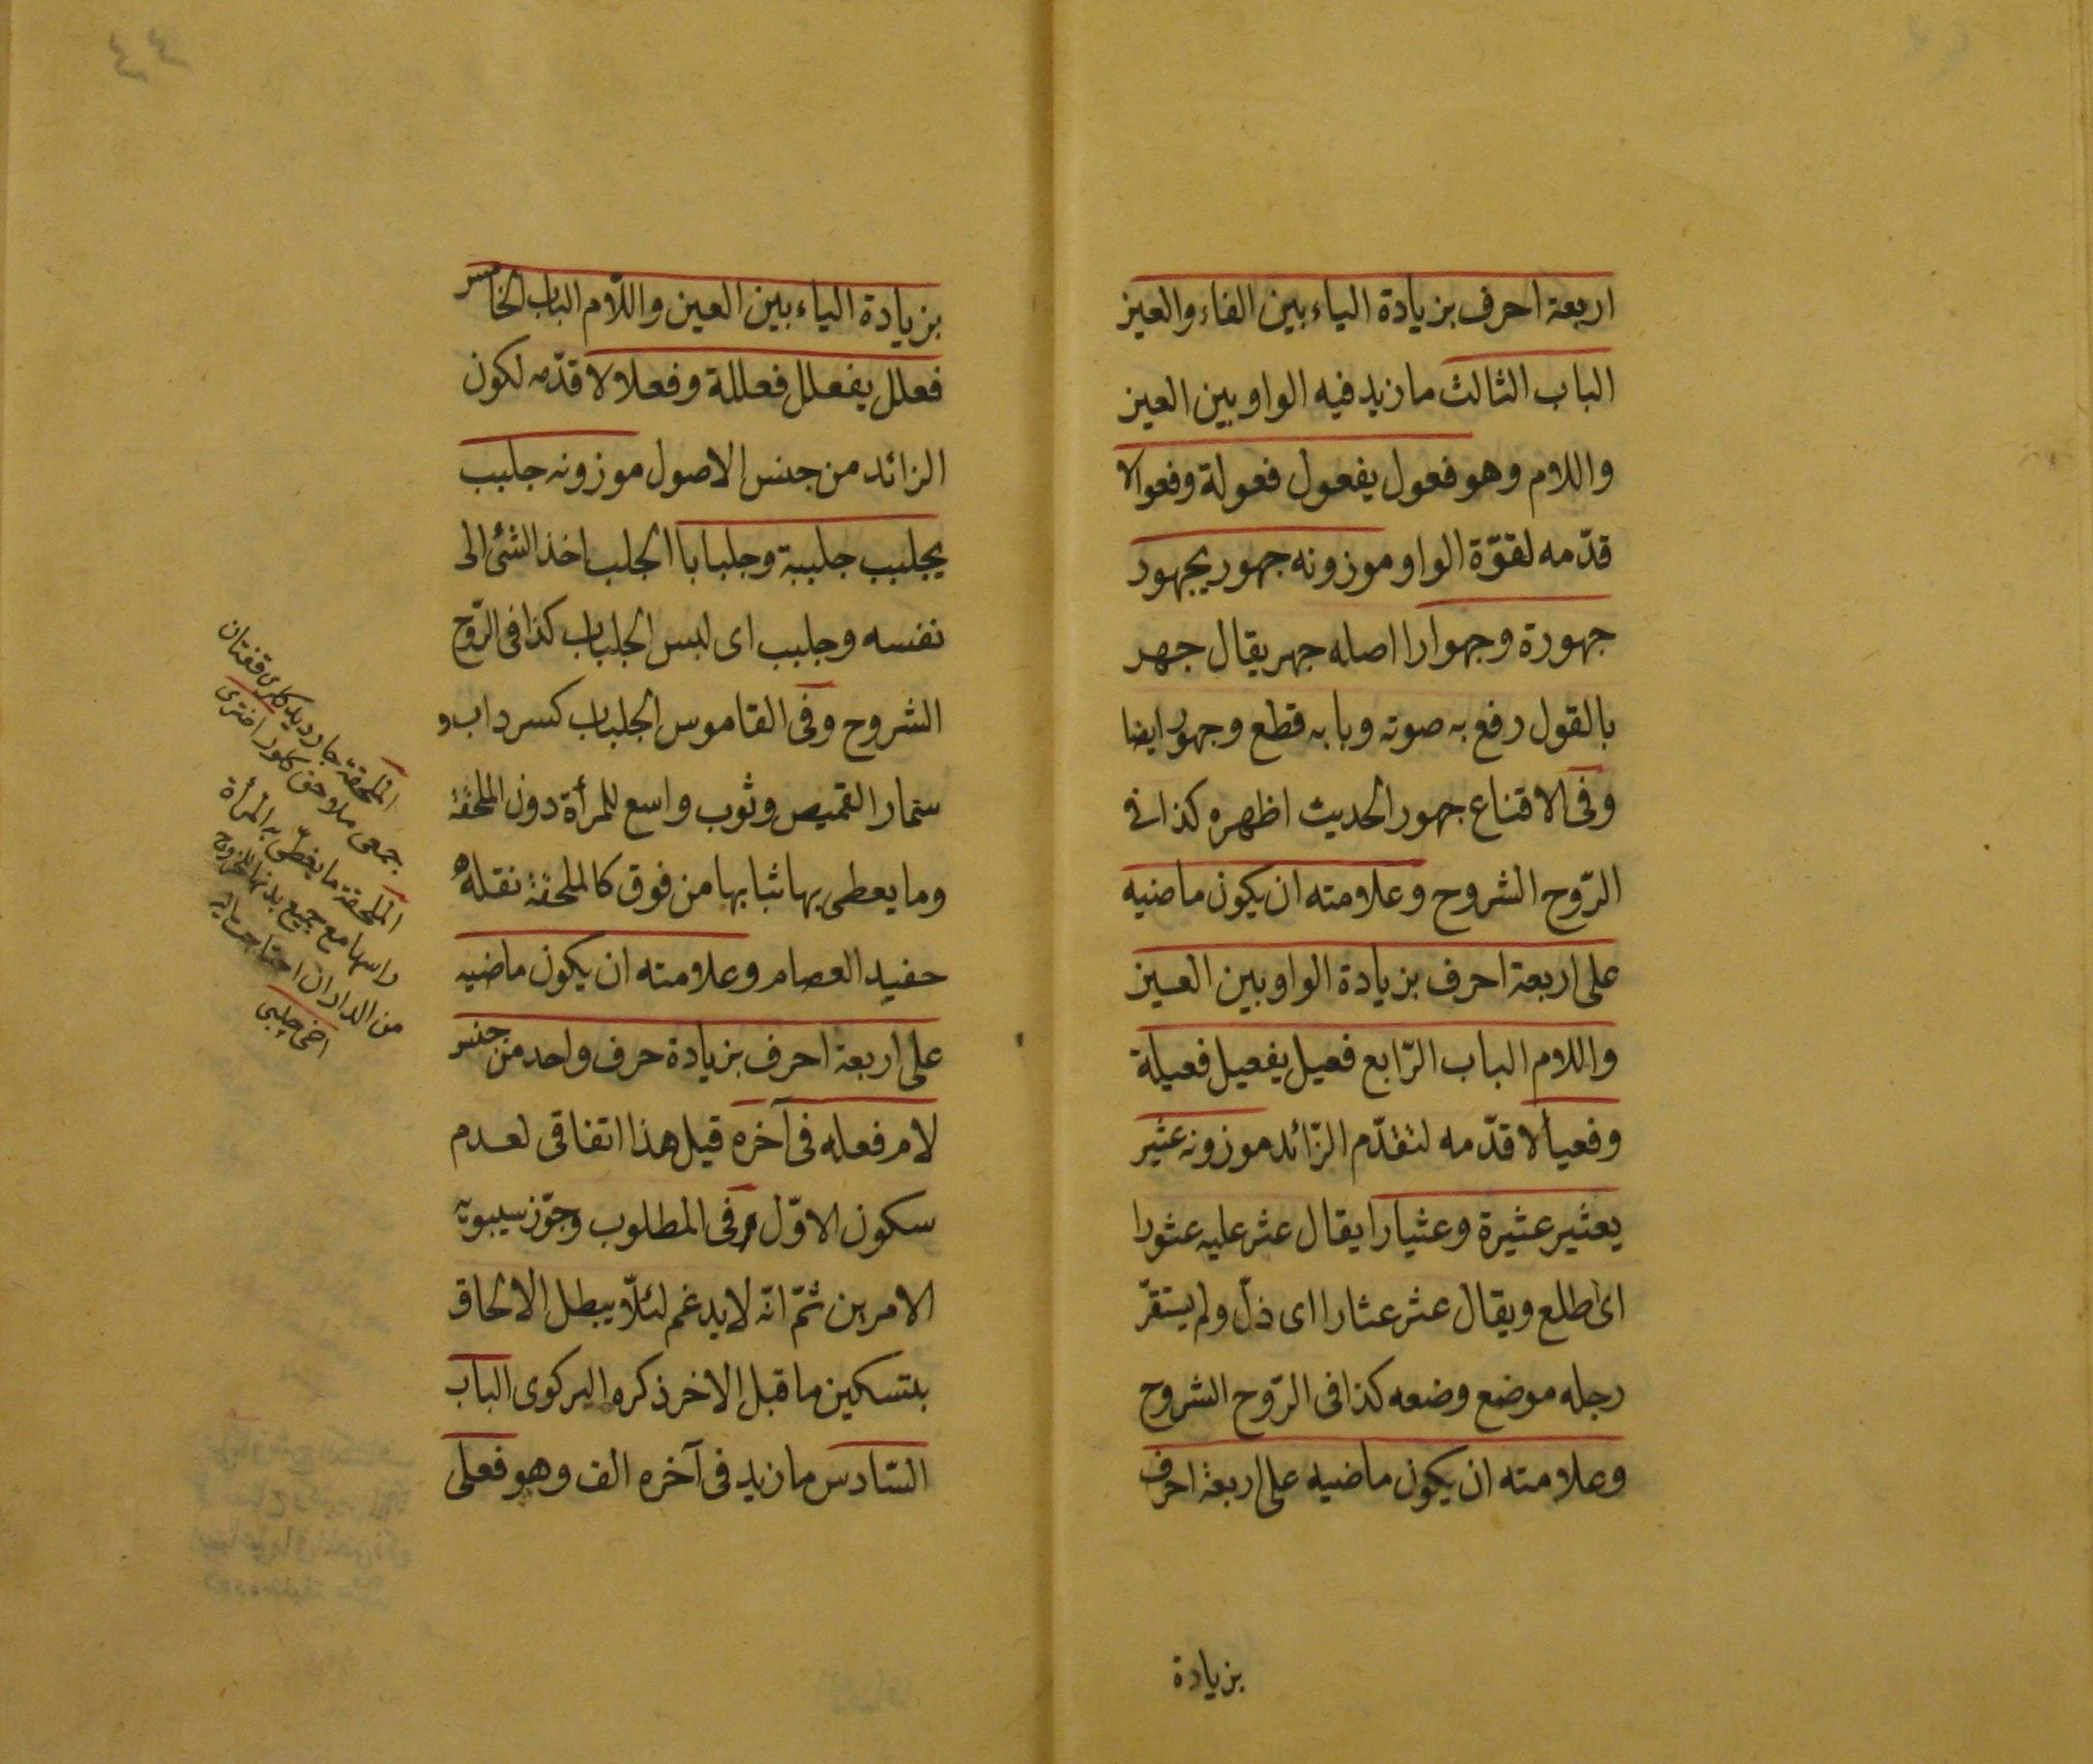 اربعة احرف بزيادة الياء بين الفاء والعين
الباب الثالث ما زيد فيه الواو بين العين
واللام وهو فعول يفعول فعولة وفعوالا
قدّمه لقوّة الواو موزونه جهور يجهور
جهورة وجهوارا اصله جهر يقال جهر
بالقول رفع به صوته وبابه قطع وجهور ايضا
وفى الاقناع جهور الحديث اظهره كذا فى
الرّوح الشروح وعلامته ان يكون ماضيه
على اربعة احرف بزيادة الواو بين العين
واللام الباب الرّابع فعيل يفعيل فعيلة
وفعيالا قدّمه لتقدّم الزّائد موزونه عثير
يعثير عثيرة وعثيارا يقال عثر عليه عثورا
اى اطلع ويقال عثر عثارا اى ذلّ ولم يستقرّ
رجله موضع وضعه كذا فى الرّوح الشروح
وعلامته ان يكون ماضيه على اربعة احرف
بزيادة
بزيادة الياء بين العين واللّام الباب الخامس
فعلل يفعلل فعللة وفعلالا قدّمه لكون
الزائد من جنس الاصول موزونه جلبب
يجلبب جلببة وجلبابا الجلب اخذ الشئ الى
نفسه وجلبب اى لبس الجلباب كذا فى الرّوح
الشروح وفى القاموس الجلباب كسرداب و
سنمار القميص وثوب واسع للمرأة دون الملحفة
وما يعطى بها ثيابها من فوق كالملحفة نقله
حفيد العصام وعلامته ان يكون ماضيه
على اربعة احرف بزيادة حرف واحد من جنس
لام فعله فى آخره قيل هذا اتفاقى لعدم
سكون الاوّل وفى المطلوب وجوّز سيبويه
الامرين ثمّ انّه لا يدغم لئلّا يبطل الالحاق
بتسكين ما قبل الاخر ذكره البركوى الباب
السّادس ما زيد فى آخره الف وهو فعلى
الملحفة جار ديدكلرى قفتان
جمعى ملاحق كلور اخترى
الملحفة ما يغطّى به المرأة
راسها مع جميع بدنها للخروج
من الدار ان احتاجت اليه
اخى چلبى